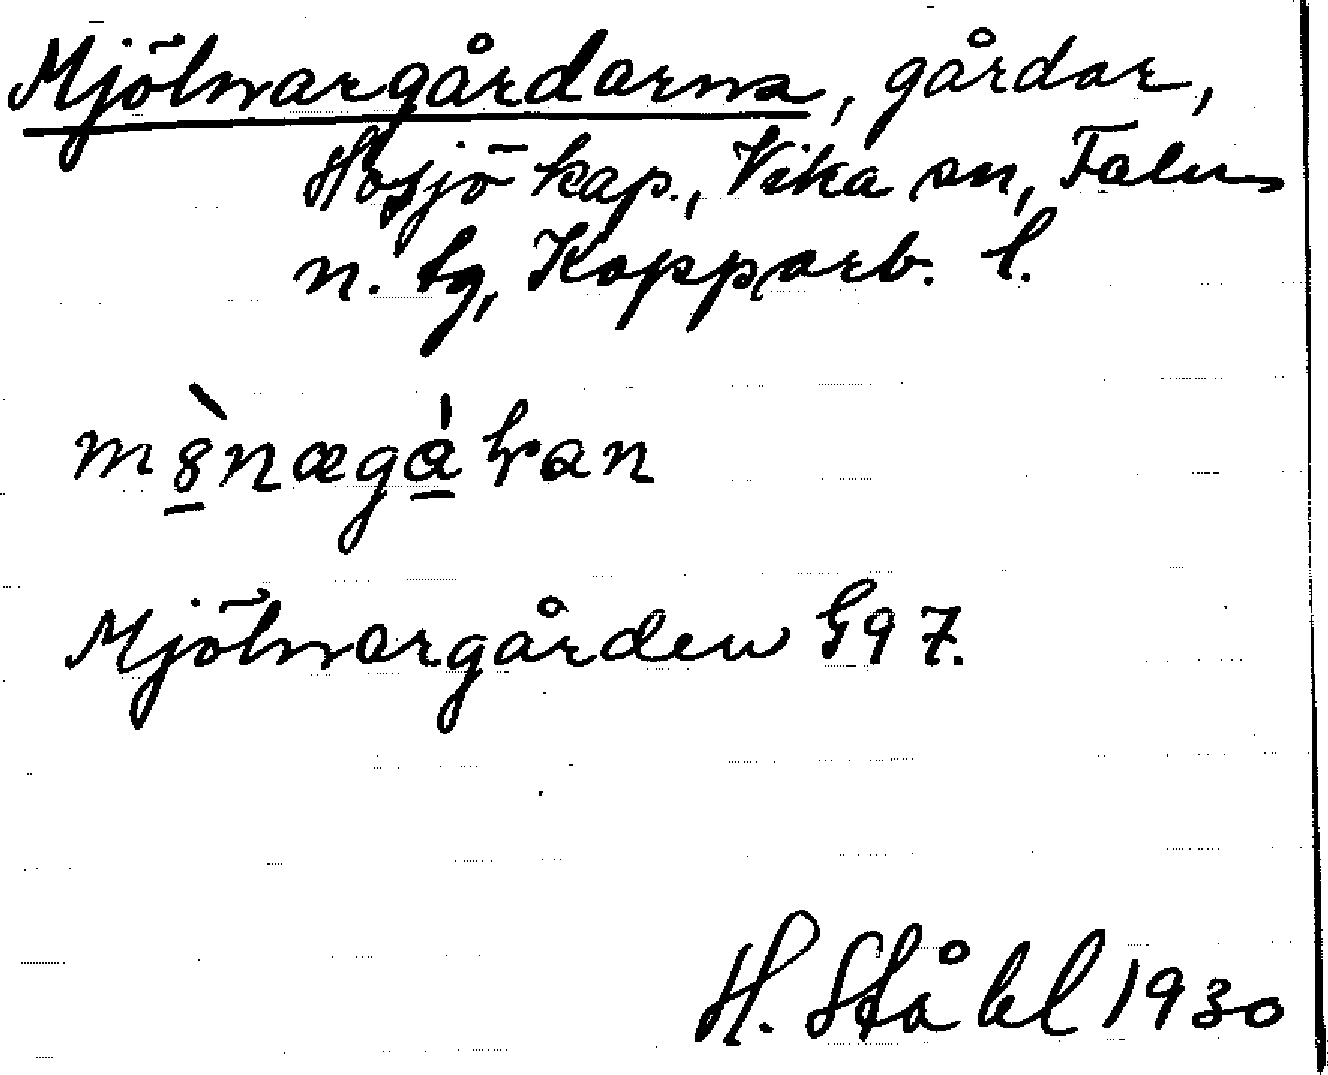 Mjölnargårdarna, gårdar,
Hosjö kap., Vika sn, Falu
n. tg, Kopparb. l.
Mjölnargården G97.
H. Ståhl 1930